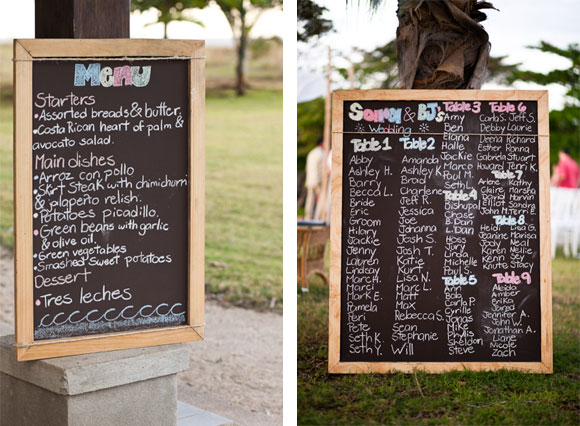 Menu
Starters
• Assorted breads & butter.
• Costa Rican heart of palm &
avocado salad.
Main dishes
• Arroz con pollo
• Skirt Steak with chimichurri
& jalapeño relish.
• Potatoes picadillo.
• Green beans with garlic
& olive oil.
• Green vegetables
• Smashed Sweet potatoes
Dessert
• Tres leches
& BJ's
Wedding
Table 1
Abby
Ashley H.
Barry
Becca L.
Bride
Eric
Groom
Hilary
Jackie
Jenny
Lauren
Lindsay
Marc H.
Marci
Mark E.
Pamela
Peri
Pete
Seth K.
Seth Y.
Table 2
Amanda
Ashley K.
Brad
Charlene
Jeff R.
Jessica
Joe
Johanna
Josh S.
Josh T.
Katie
Kurt
Lisa N.
Marc L.
Matt
Max
Rebecca S.
Sean
Stephanie
Will
Table 3
Amy
Ben
Elana
Halle
Jackie
Marco
Paul M.
Seth
Table 4
Bishupal
Chase
B. Dan
L. Dan
Hoss
Jury
Linda
Michelle
Paul S.
Table 5
Ann
Bala
Carla P.
Cyrille
Jonas
Mike
Phyllis
Sheldon
Steve
Table 6
Carla S. Jeff S.
Debby Laurie
Deena Richard
Esther Ronna
Gabriela Stuart
Howard Terri K.
Table 7
Arlene Kathy
Claire Marsha
David Marvin
Elliot Sandra
John M. Terri E.
Table 8
Heidi Lisa G.
Jeanine Marisa
Jody Neal
Karen Neil
Kensey Sky
Knute Stacy
Table 9
Aleida
Amber
Erika
Jared
Jennifer A.
John W.
Jonathan A.
Liane
Nicole
Zach